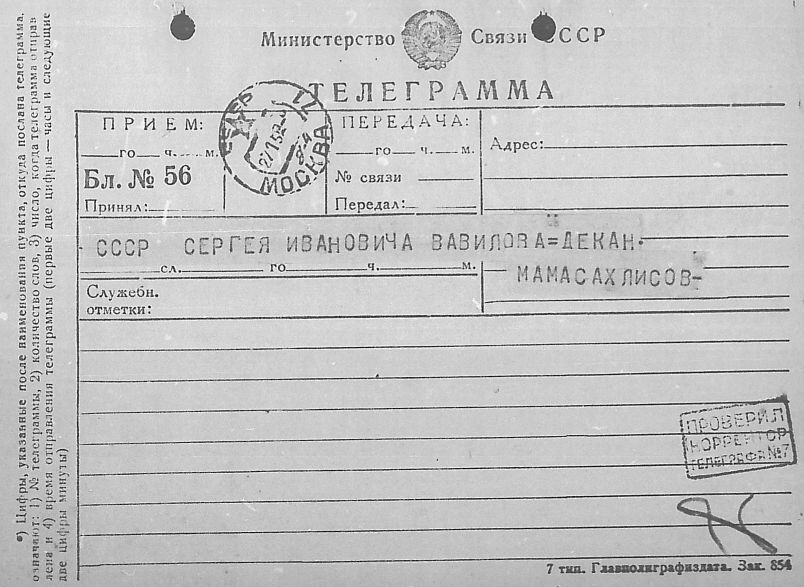 Министерство Связи СССР
ТЕЛЕГРАММА
ПРИЕМ:
го ч. м.
Бл. № 56
Принял:
МОСКВА
ПЕРЕДАЧА:
го ч. м.
№ связи
Передал:
Адрес:
СССР СЕРГЕЯ ИВАНОВИЧА ВАВИЛОВА=ДЕКАН
сл. го ч. м.
МАМАСАХЛИСОВ-
Служебн.
отметки:
ПРОВЕРИЛ
КОРРЕКТОР
ТЕЛЕГРАФА №7
7 тип. Главполиграфиздата. Зак. 854
*) Цифры, указанные после наименования пункта, откуда послана телеграмма,
означают: 1) № телеграммы, 2) количество слов, 3) число, когда телеграмма отправ
лена и 4) время отправления телеграммы (первые две цифры — часы и следующие
две цифры минуты)